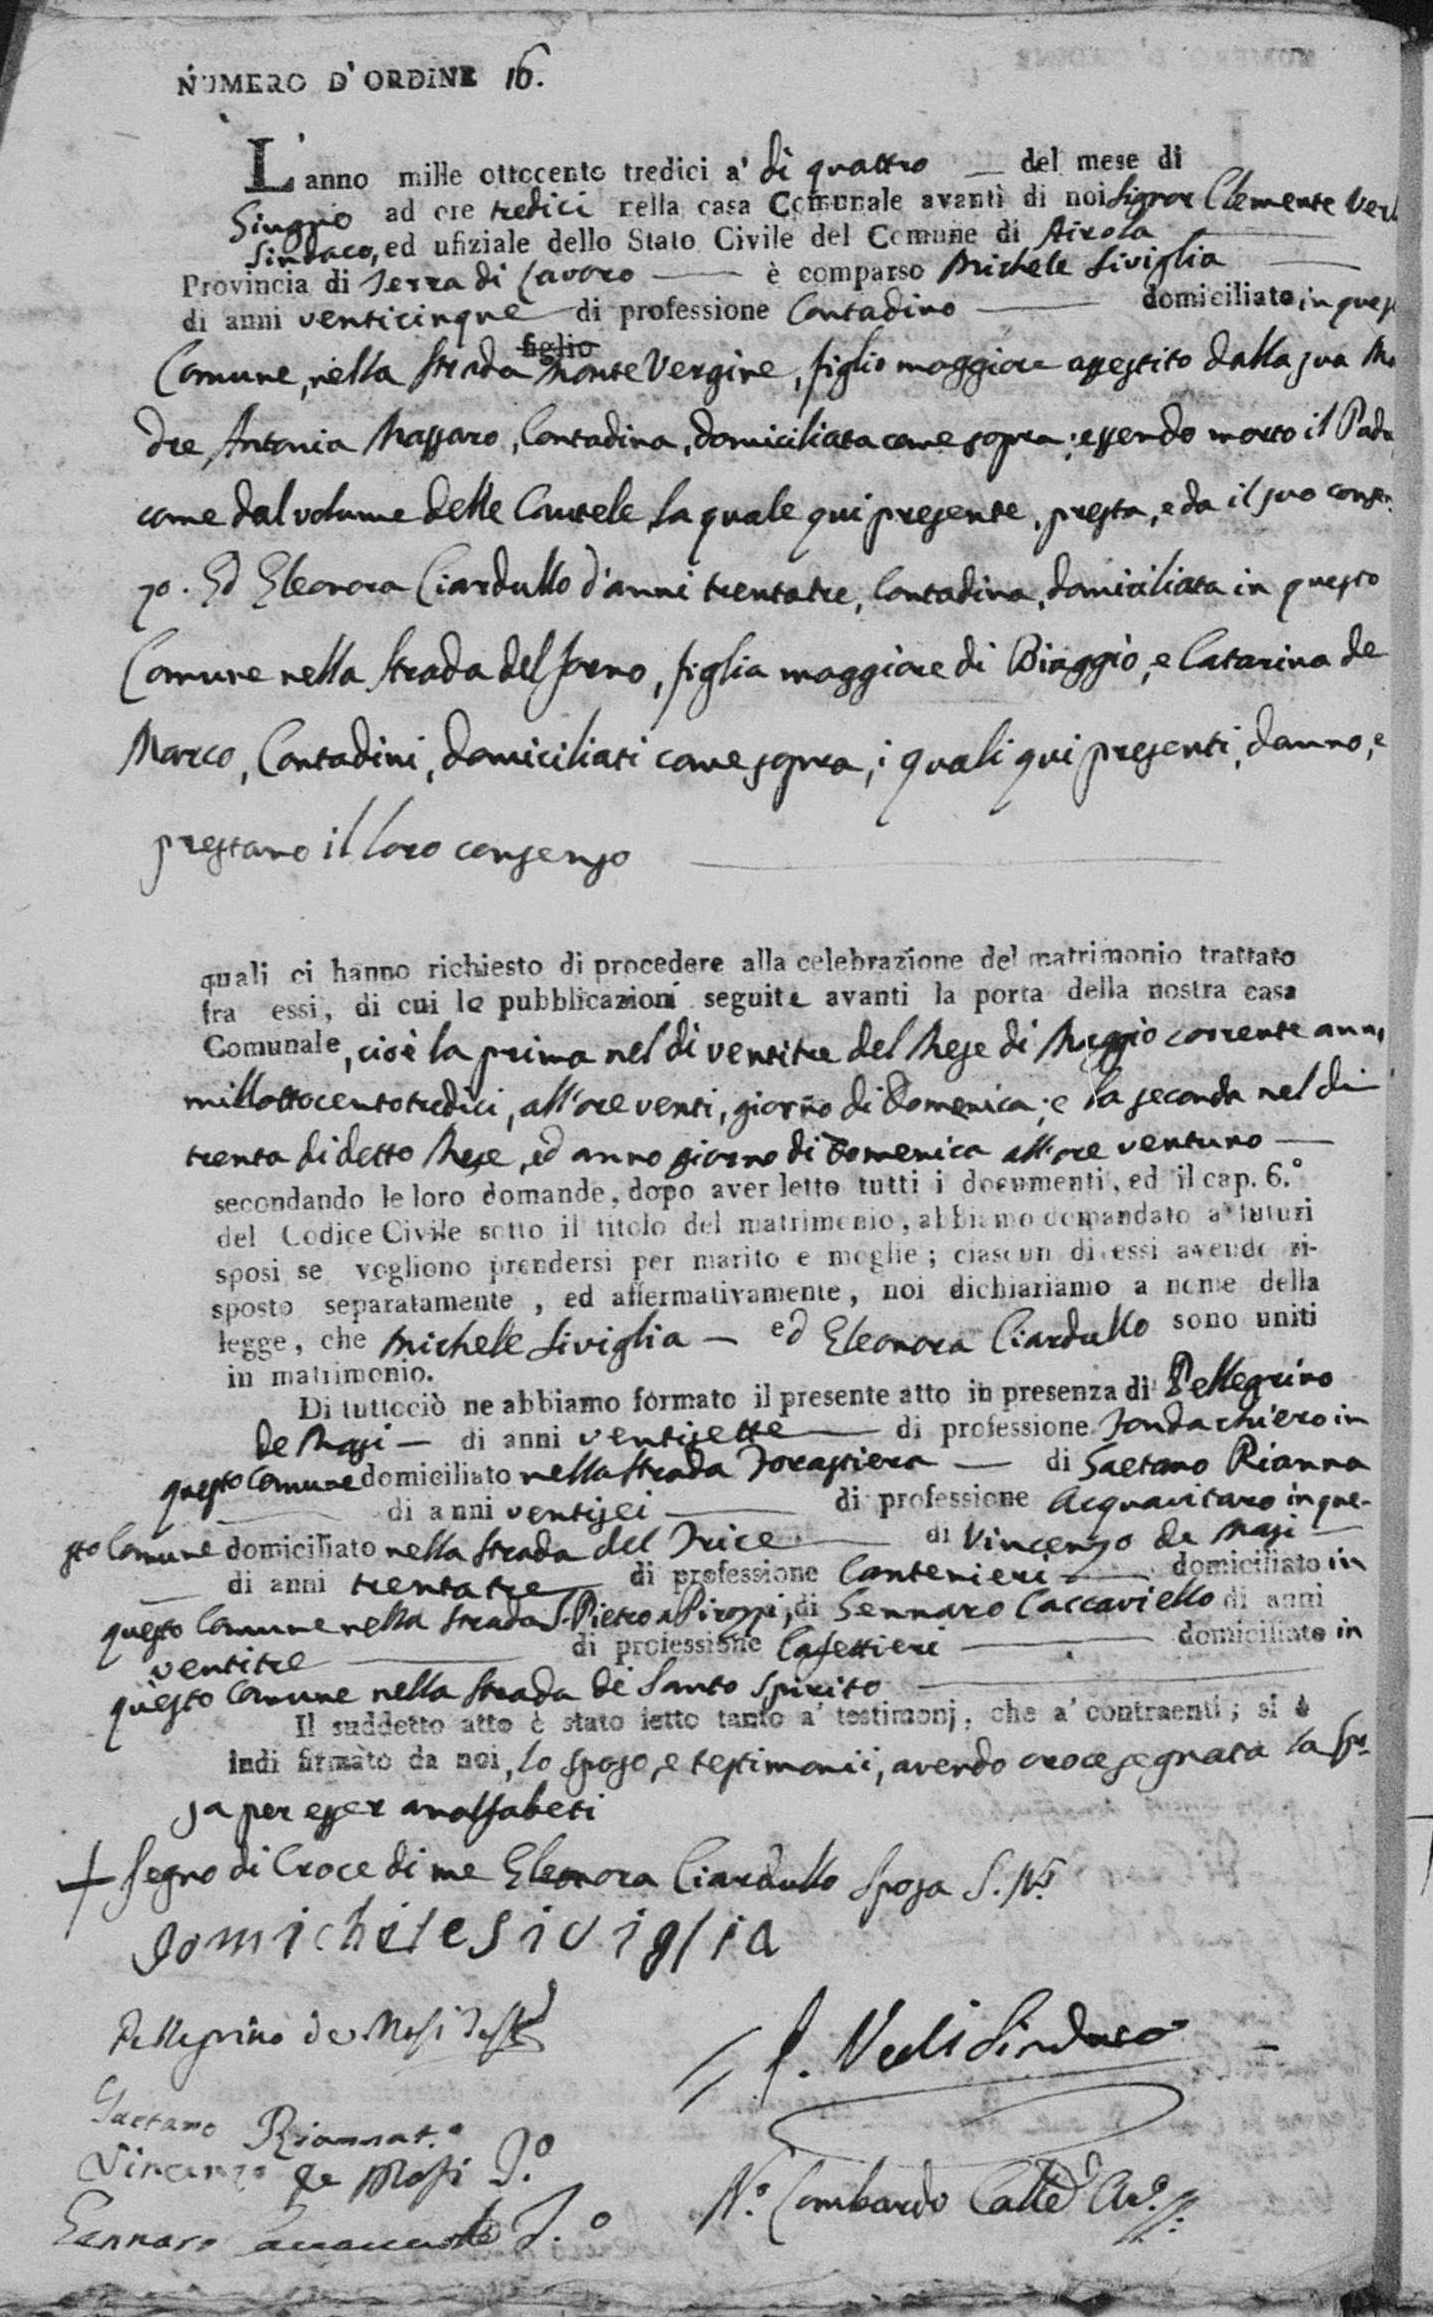 NUMERO D'ORDINE 16.
L'anno mille ottocento tredici a' di quattro — del mese di
Giugno ad ore tredici nella casa Comunale avanti di noi Signor Clemente
Sindaco, ed ufiziale dello Stato Civile del Comune di Airola
Provincia di Terra di Lavoro — è comparso Michele Siviglia —
di anni venticinque di professione Contadino — domiciliato in
figlio
Comune, nella Strada Monte Vergine, figlio maggiore assestito dalla sua Ma
dre Antonia Massaro, Contadina, domiciliata come sopra; essendo morto il
come dal volume delle Cautele la quale qui presente, presta, e da il suo consen
zo. Ed Eleonora Ciardullo d'anni trentatre, Contadina, domiciliata in questo
Comune nella Strada del forno, figlia maggiore di Biaggio, e Catarina de
Marco, Contadini, domiciliati come sopra, i quali qui presenti, danno, e
prestano il loro consenzo —
quali ci hanno richiesto di procedere alla celebrazione del matrimonio trattato
fra essi, di cui le pubblicazioni seguite avanti la porta della nostra casa
Comunale, cioè la prima nel di ventitre del Mese di Maggio corrente
millottocentotredici, all'ore venti, giorno di Domenica; e la seconda nel di
trenta di detto Mese, ed anno giorno di Domenica all'ore ventuno —
secondando le loro domande, dopo aver letto tutti i documenti, ed il cap. 6.°
del Codice Civile sotto il titolo del matrimonio, abbiamo domandato a' futuri
sposi se vogliono prendersi per marito e moglie; ciascun di essi avendo ri-
sposto separatamente, ed affermativamente, noi dichiariamo a nome della
legge, che Michele Siviglia — ed Eleonora Ciardullo sono uniti
in matrimonio.
Di tuttociò ne abbiamo formato il presente atto in presenza di Pellegrino
de Masi — di anni ventisette — di professione Fondachiero in
questo Comune domiciliato nella Strada Forastiera — di Gaetano Rianna
di anni ventisei — di professione Acquavitaro in que-
sto Comune domiciliato nella Strada del Trice — di Vincenzo de Masi —
di anni trentatre — di professione Cantenieri — domiciliato in
questo Comune nella Strada S. Pietro a Pirozzi, di Gennaro Caccaviello di anni
ventitre — di professione Cafettieri — domiciliato in
questo Comune nella Strada de Santo Spirito —
Il suddetto atto è stato letto tanto a' testimonj, che a' contraenti; si è
indi firmato da noi, lo sposo, e testimonii, avendo crocesegnata la spo
sa per esser analfabeti
+ Segno di Croce di me Eleonora Ciardullo Sposa
Io michele siviglia
Pellegrino de Masi
Gaetano Rianna t.°
Vincenzo de Masi T.°
Gennaro T.°
Sindaco
N.° Lombardo